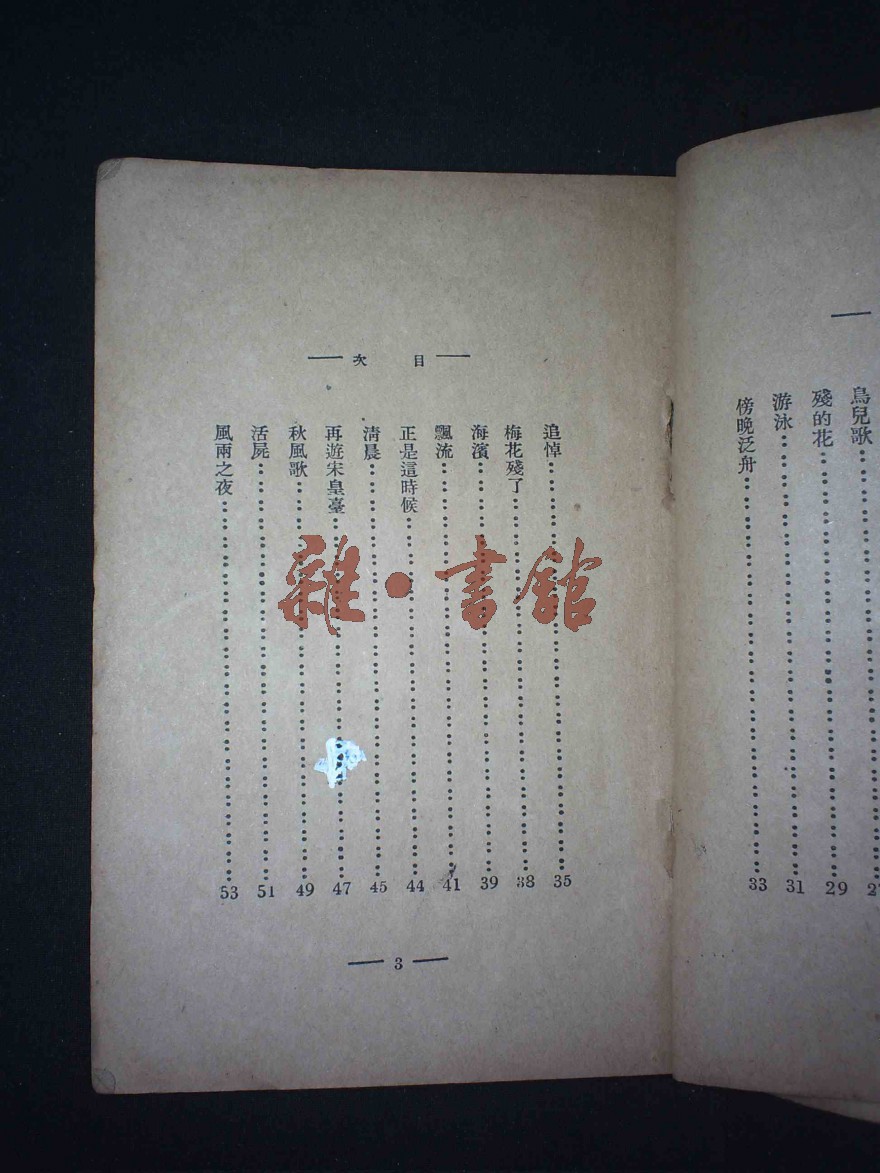 鳥兒歌 27
殘的花 29
游泳 31
傍晚泛舟 33
目次
追悼 35
梅花殘了 38
海濱 39
飄流 41
正是這時候 44
清晨 45
再遊宋皇臺 47
秋風歌 49
活屍 51
風雨之夜 53
3
雜·書館